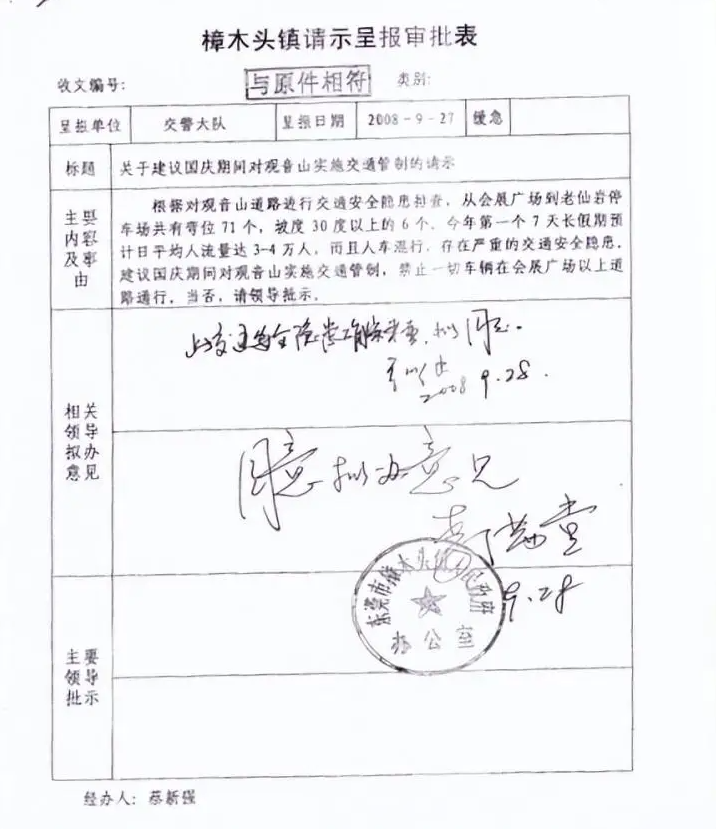 樟木头镇请示呈报审批表
收文编号：
与原件相符
类别：
呈报单位
交警大队
呈报日期
2008-9-27
缓急
标题
关于建议国庆期间对观音山实施交通管制的请示
主要
内容
及事
由
根据对观音山道路进行交通安全隐患排查，从会展广场到老仙岩停
车场共有弯位71个，坡度30度以上的6个。今年第一个7天长假期预
计日平均人流量达3-4万人，而且人车混行，存在严重的交通安全隐患，
建议国庆期间对观音山实施交通管制，禁止一切车辆在会展广场以上道
路通行，当否，请领导批示。
相关
领导
拟办
意见
拟同意。
2008 9.28.
同意拟办意见
9.28
东莞市樟木头镇人民政府
办公室
主要
领导
批示
经办人：蔡新强